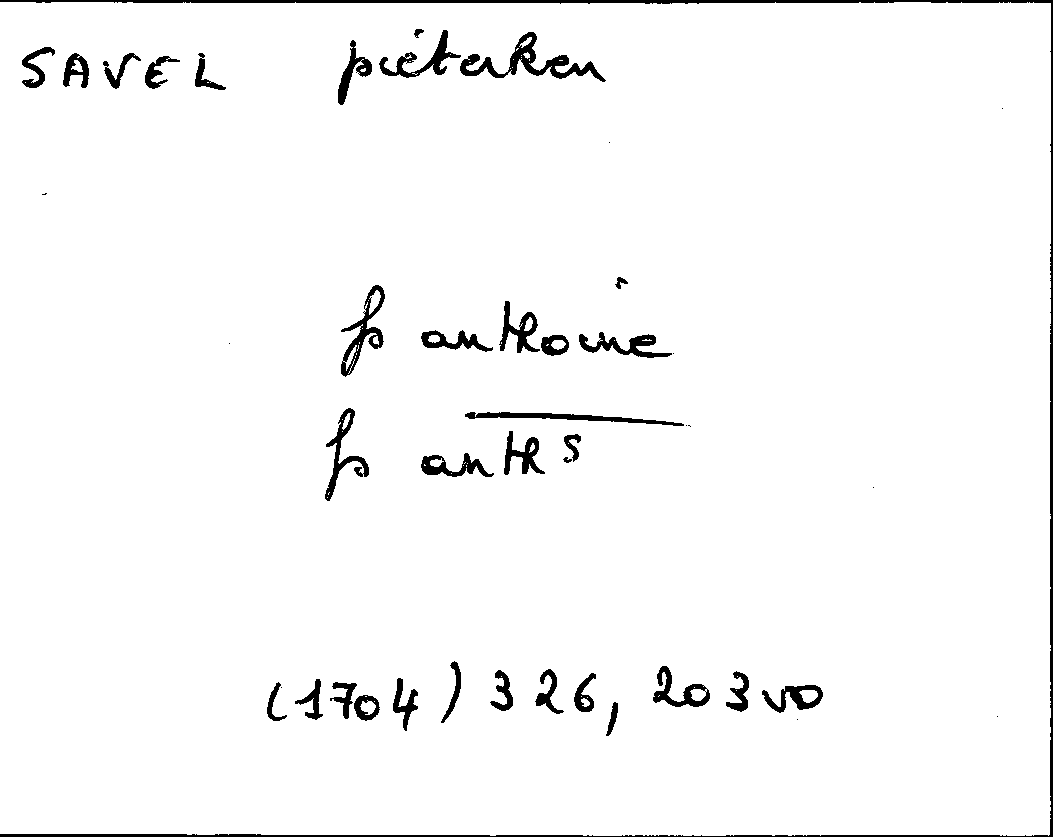 SAVEL pieterken
fs anthoine
fs anth s
(1704) 326, 203 vo